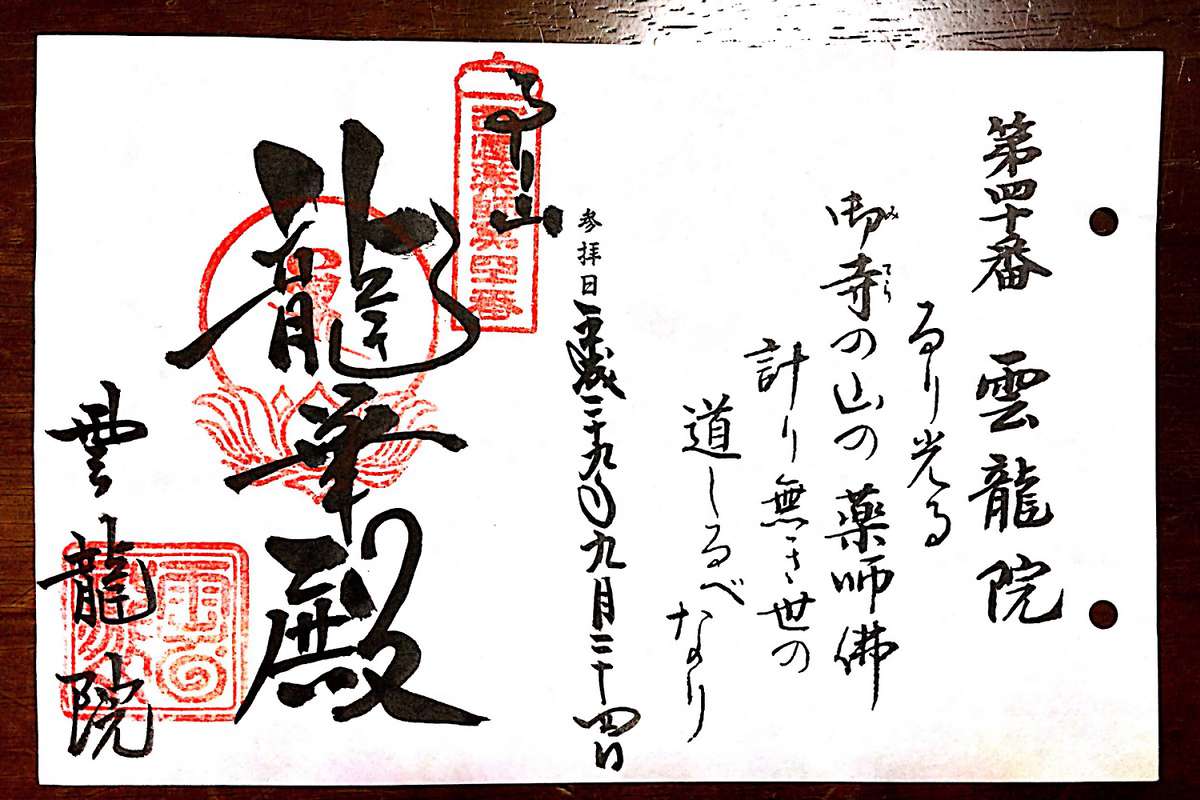 第四十番 雲龍院
るり光る
御寺の山の薬師佛
み
てら
計り無き世の
道しるべなり
参拝日 平成二十九年九月二十四日
西国薬師第四十番
龍華殿
雲龍院